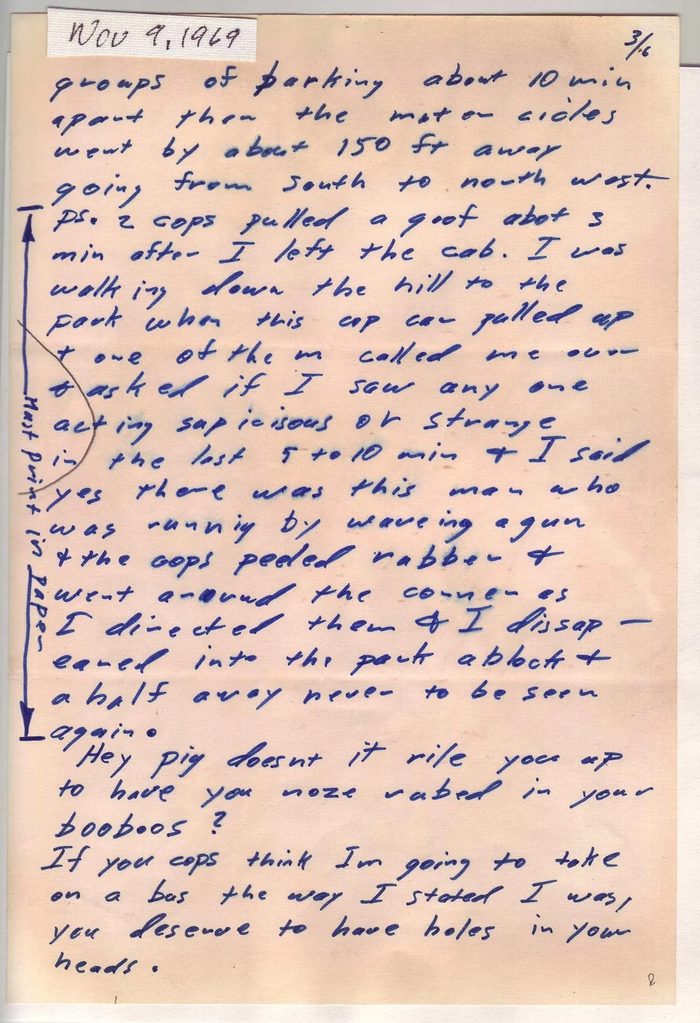 Nov 9, 1969
3/6
groups of parking about 10 min
apart then the motor cicles
went by about 150 ft away
going from south to north west.
ps. 2 cops pulled a goof abot 3
min after I left the cab. I was
walking down the hill to the
park when this cop car pulled up
+ one of them called me over
+ asked if I saw any one
acting supicisous or strange
in the last 5 to 10 min + I said
yes there was this man who
was runnig by waveing a gun
+ the cops peeled rubber +
went around the corner as
I directed them + I dissap-
eared into the park a block +
a half away never to be seen
again.
Must print in paper
Hey pig doesnt it rile you up
to have you noze rubed in your
booboos ?
If you cops think Im going to take
on a bus the way I stated I was,
you deserve to have holes in your
heads.